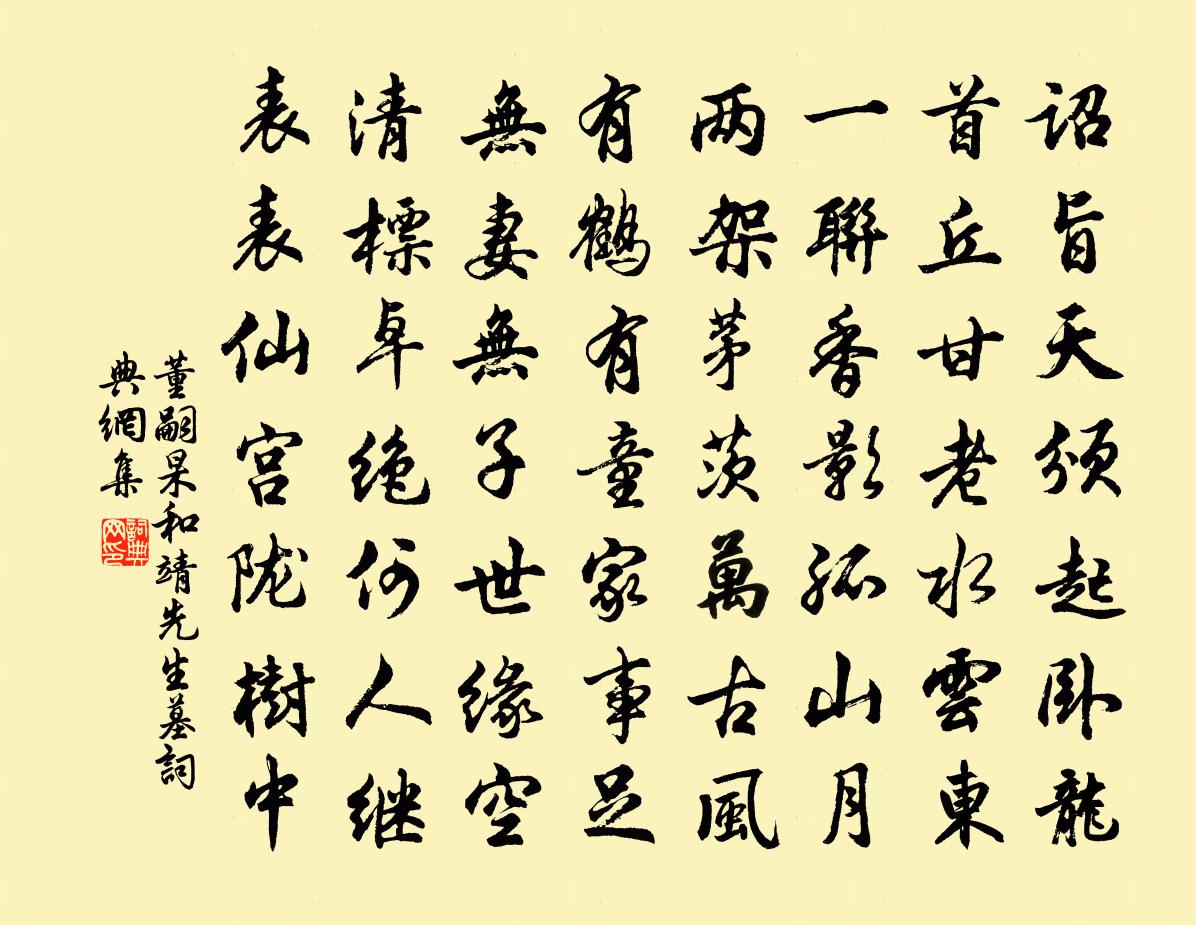 诏旨天颁起卧龍
首丘甘老水雲東
一聯香影孤山月
两架茅茨萬古風
有鶴有童家事足
無妻無子世缘空
清標卓绝何人继
表表仙宫陇樹中
董嗣杲和靖先生墓詞
典網集
詞典网印